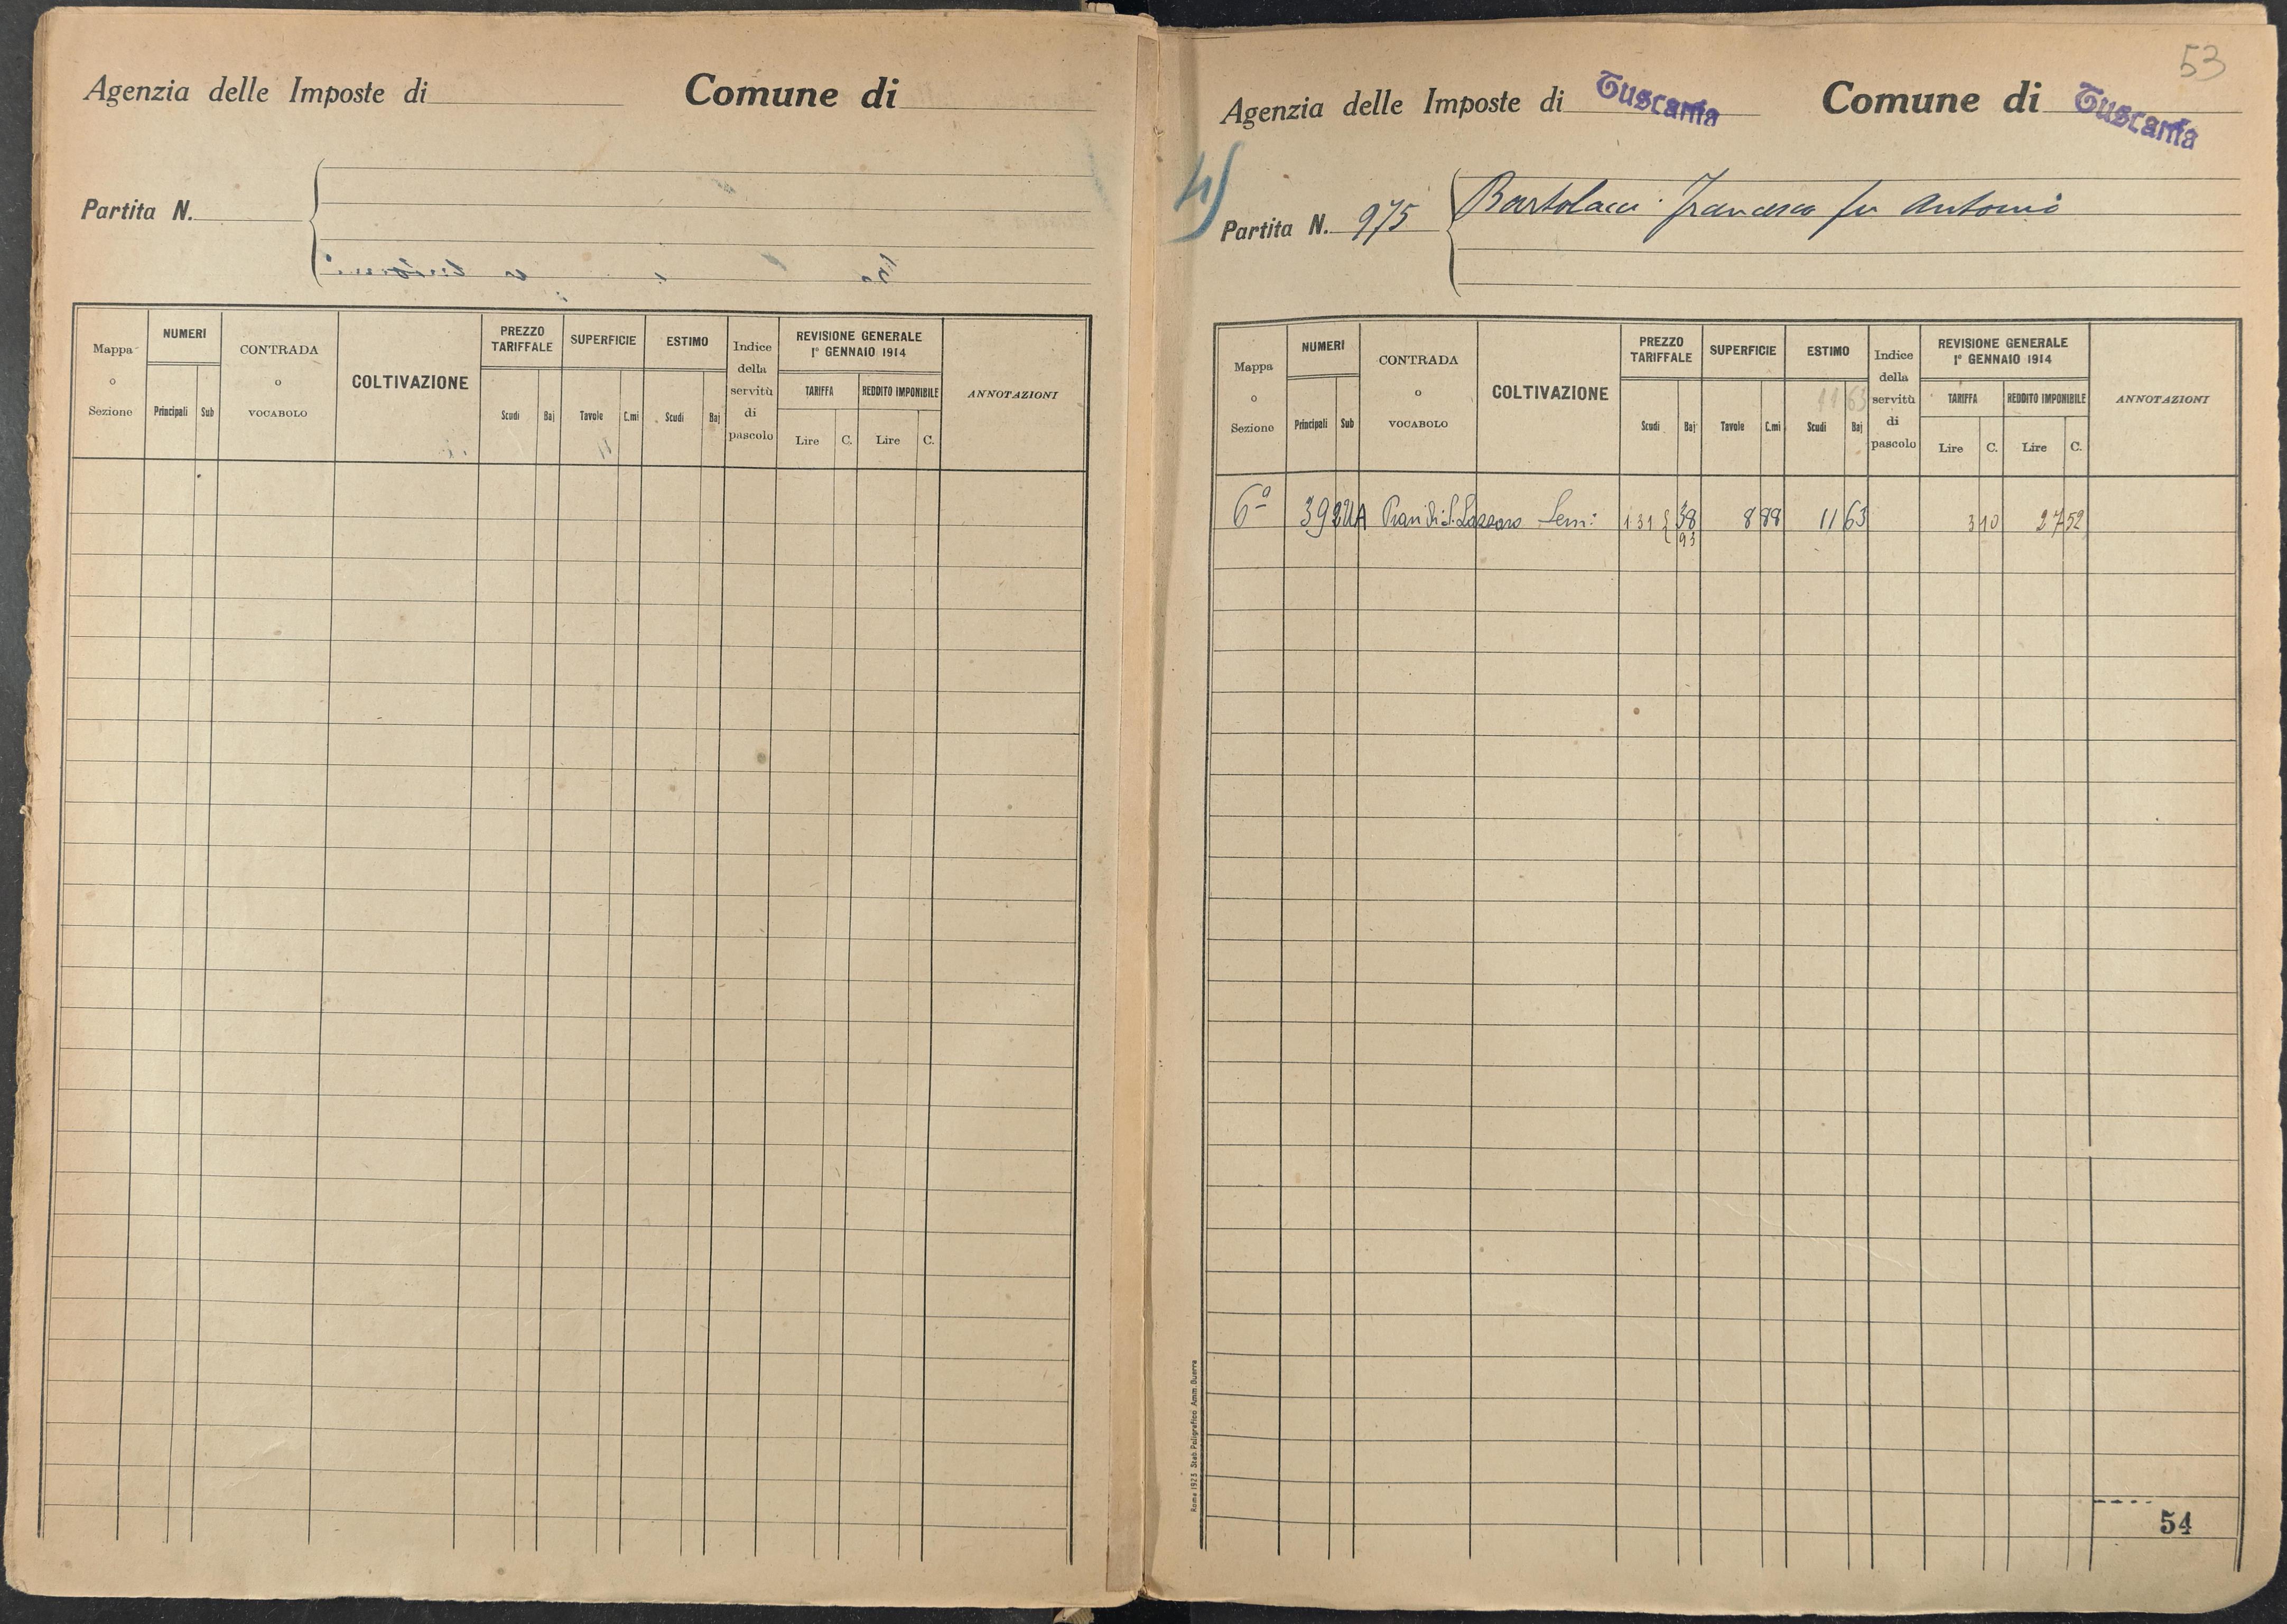 Agenzia delle Imposte di Comune di
Partita N.
Mappa o Sezione
NUMERI
Principali Sub
CONTRADA o VOCABOLO
COLTIVAZIONE
PREZZO TARIFFALE
Scudi Baj
SUPERFICIE
Tavole C.mi
ESTIMO
Scudi Baj
Indice della servitù di pascolo
REVISIONE GENERALE
1° GENNAIO 1914
TARIFFA REDDITO IMPONIBILE
Lire C. Lire C.
ANNOTAZIONI
53
Agenzia delle Imposte di Tuscania Comune di Tuscania
4)
Partita N. 975 Bartolacci Francesco fu Antonio
Mappa o Sezione
NUMERI
Principali Sub
CONTRADA o VOCABOLO
COLTIVAZIONE
PREZZO TARIFFALE
Scudi Baj
SUPERFICIE
Tavole C.mi
ESTIMO
11 63
Scudi Baj
Indice della servitù di pascolo
REVISIONE GENERALE
1° GENNAIO 1914
TARIFFA REDDITO IMPONIBILE
Lire C. Lire C.
ANNOTAZIONI
6a Pian di S. Lazzaro Sem: 1.31 { 38 8 88 11 63 3 10 27 52
93
Roma 1923. Stab. Poligrafico Amm. Guerra
54